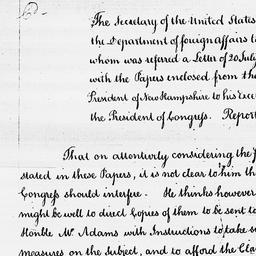 The Secretary of the United States
the Department of foreign affairs to
whom was referred a Letter of 20 July
with the Papers enclosed from the
President of New Hampshire to his Exce
the President of Congress. Report
That on attentively considering the
stated in these Papers, it is not clear to him th
Congress should interfere. He thinks however
might be well to direct Copies of them to be sent to
Honble Mr. Adams with Instructions to take su
measures on the Subject, and to afford the Cla